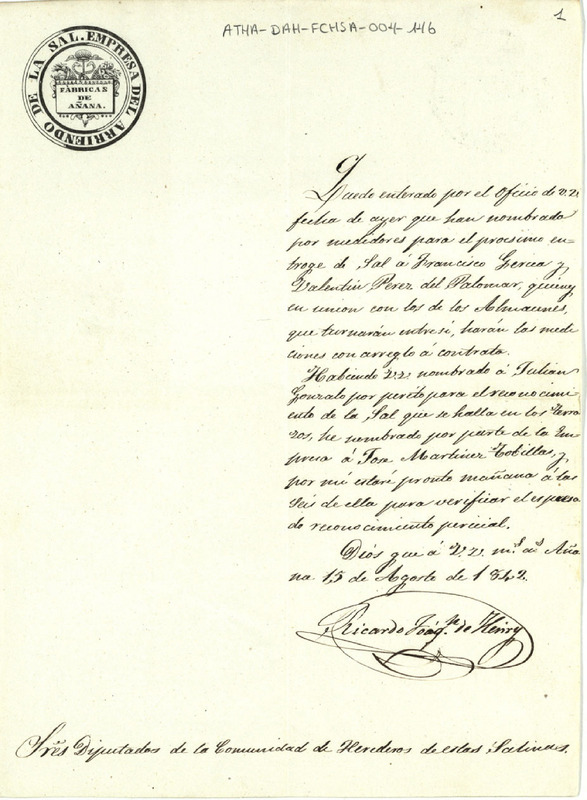 ATHA-DAH-FCHSA-004-146
1
LA SAL. EMPRESA DEL ARRIENDO DE
FÁBRICAS
DE
AÑANA.
Quedo enterado por el Oficio de V.V.
fecha de ayer que han nombrado
por medidores para el procsimo en-
troge de Sal á Francisco Gercea y
Valentin Perez del Palomar, quienes
en union con los de los Almacenes,
que turnarán entre sí, harán las medi-
ciones con arreglo á contrata.
Habiendo V.V. nombrado á Julian
Gonzalo por períto para el reconocimi-
ento de la Sal que se halla en los Terra
zos, he nombrado por parte de la Em-
presa á Jose Martinez Tobillas, y
por mi estaré pronto mañana á las
seis de ella para verificar el espresa
do reconocimiento pericial.
Diós gue á V.V. ms. as. Aña
na 15 de Agosto de 1842.
Ricardo Joaqn. de Henry
Sres Diputados de la Comunidad de Herederos de estas Salinas.